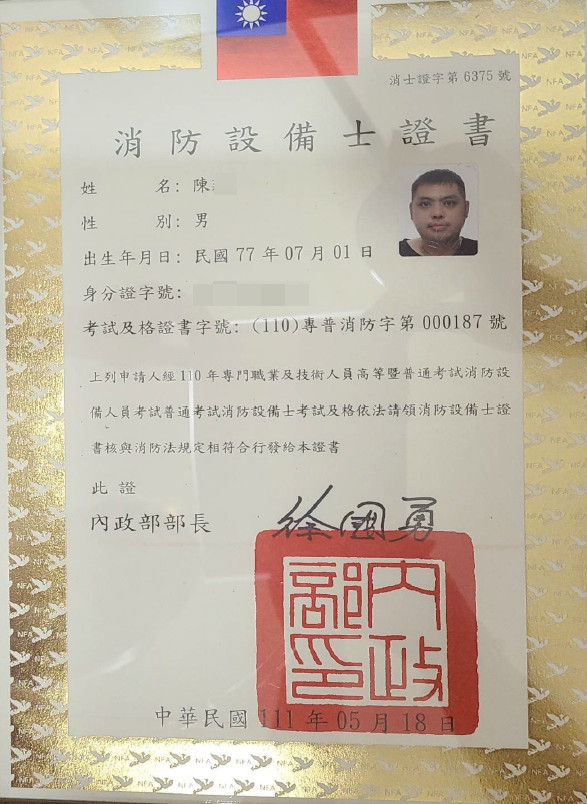 消士證字第 6375 號
消防設備士證書
姓名：陳
性別：男
出生年月日：民國 77 年 07 月 01 日
身分證字號：
考試及格證書字號：(110)專普消防字第 000187 號
上列申請人經110年專門職業及技術人員高等暨普通考試消防設
備人員考試普通考試消防設備士考試及格依法請領消防設備士證
書核與消防法規定相符合行發給本證書
此證
內政部部長 徐國勇
內政部印
中華民國 111 年 05 月 18 日
NFA